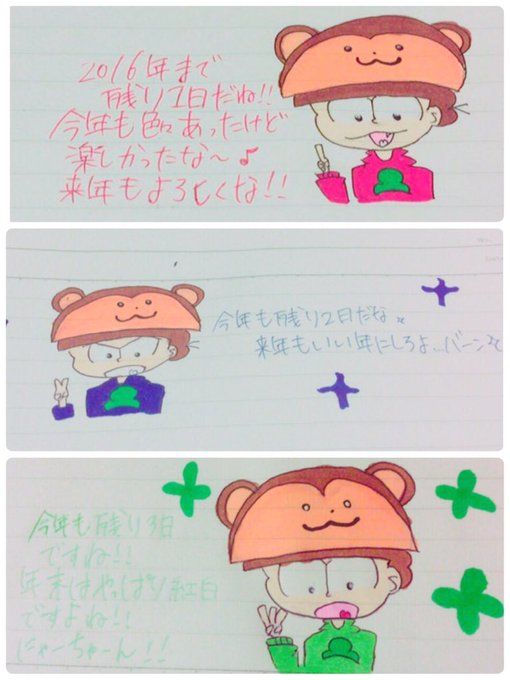 2016年まで
残り1日だね!!
今年も色々あったけど
楽しかったな〜♪
来年もよろしくな!!
今年も残り2日だな☆
来年もいい年にしろよ…バーン☆
今年も残り3日
ですね!!
年末はやっぱり紅白
ですよね!!
にゃーちゃーん!!